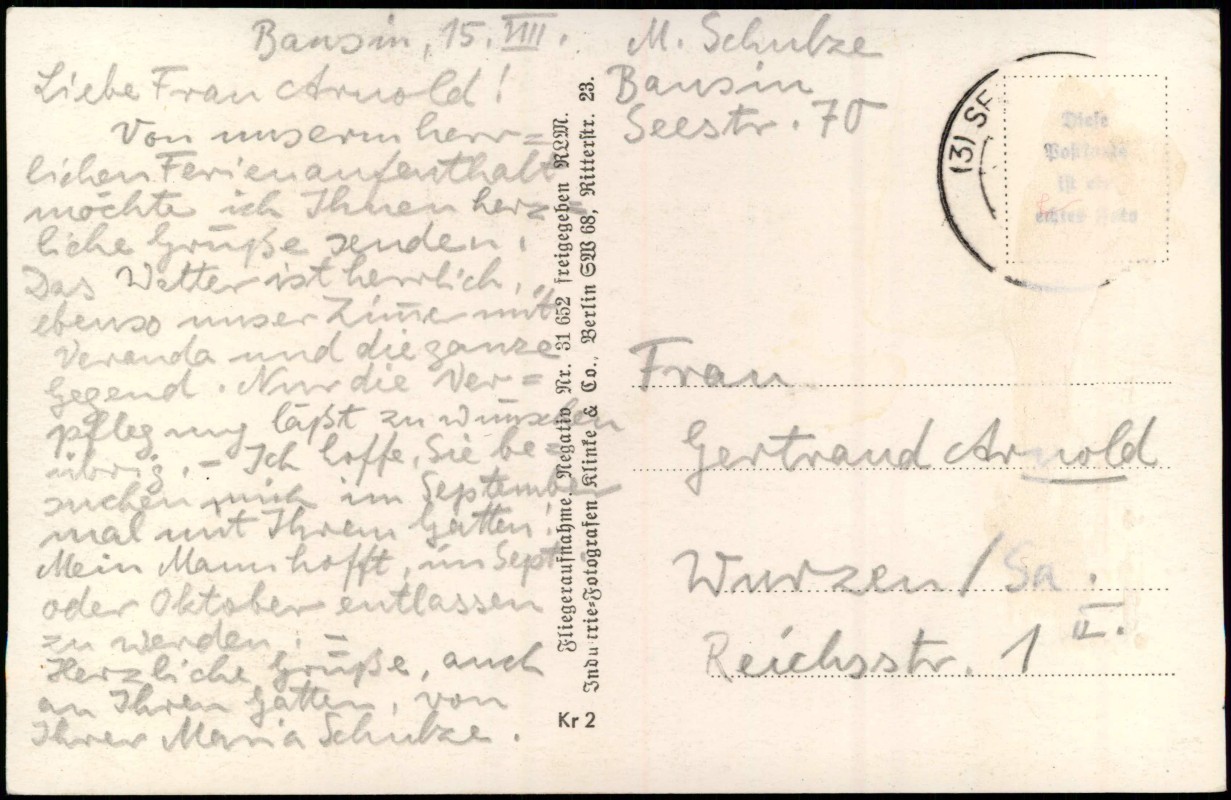 Bansin, 15. VIII.
Liebe Frau Arnold!
Von unserm herr=
lichen Ferienaufenthalt
möchte ich Ihnen herz=
liche Grüße senden.
Das Wetter ist herrlich,
ebenso unser Zim̅er mit
Veranda und die ganze
Gegend. Nur die Ver=
pflegung läßt zu wünschen
übrig. – Ich hoffe, Sie be=
suchen mich im September
mal mit Ihrem Gatten!
Mein Mann hofft, im Sept.
oder Oktober entlassen
zu werden. –
Herzliche Grüße, auch
an Ihren Gatten, von
Ihrer Maria Schulze.
Fliegeraufnahme. Negativ Nr. 31 652 freigegeben RLM.
Indu trie-Fotografen Klinke & Co., Berlin SW 68, Ritterstr. 23.
Kr 2
M. Schulze
Bansin
Seestr. 70
(3) SE
Diese
Postkarte
ist ein
echtes Foto
Frau
Gertraud Arnold
Wurzen / Sa.
Reichsstr. 1 II.